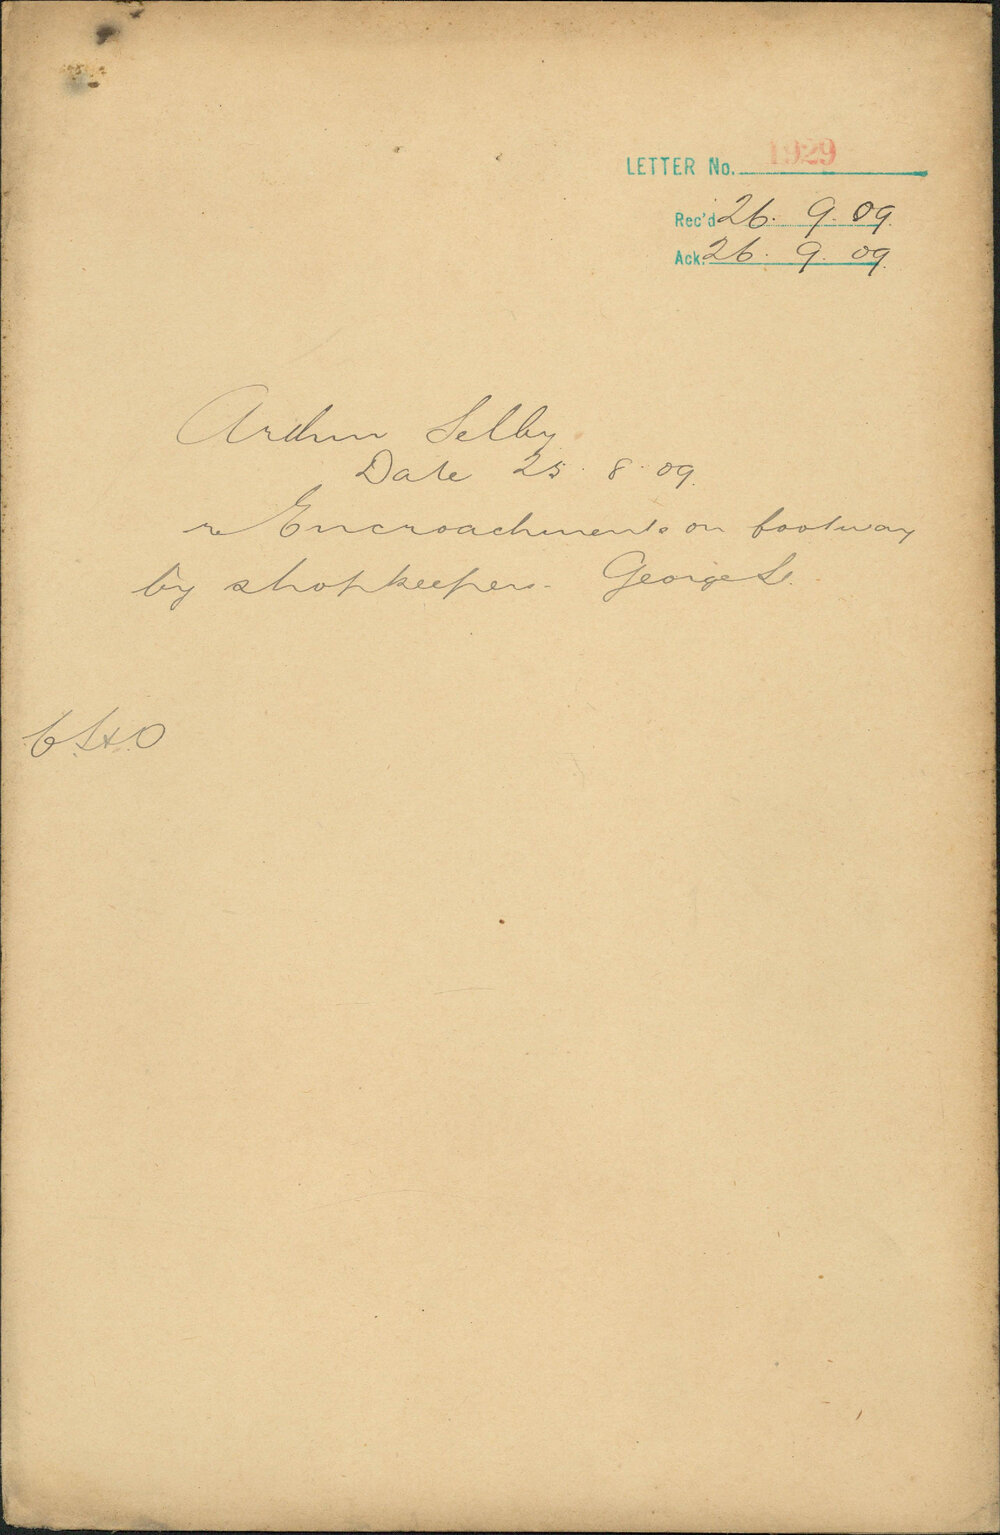 LETTER No. 1929
Rec'd 26. 9. 09.
Ack. 26. 9. 09.
Arthur Selby
Date 25. 8. 09.
re Encroachments on footway
by shopkeepers. George St.